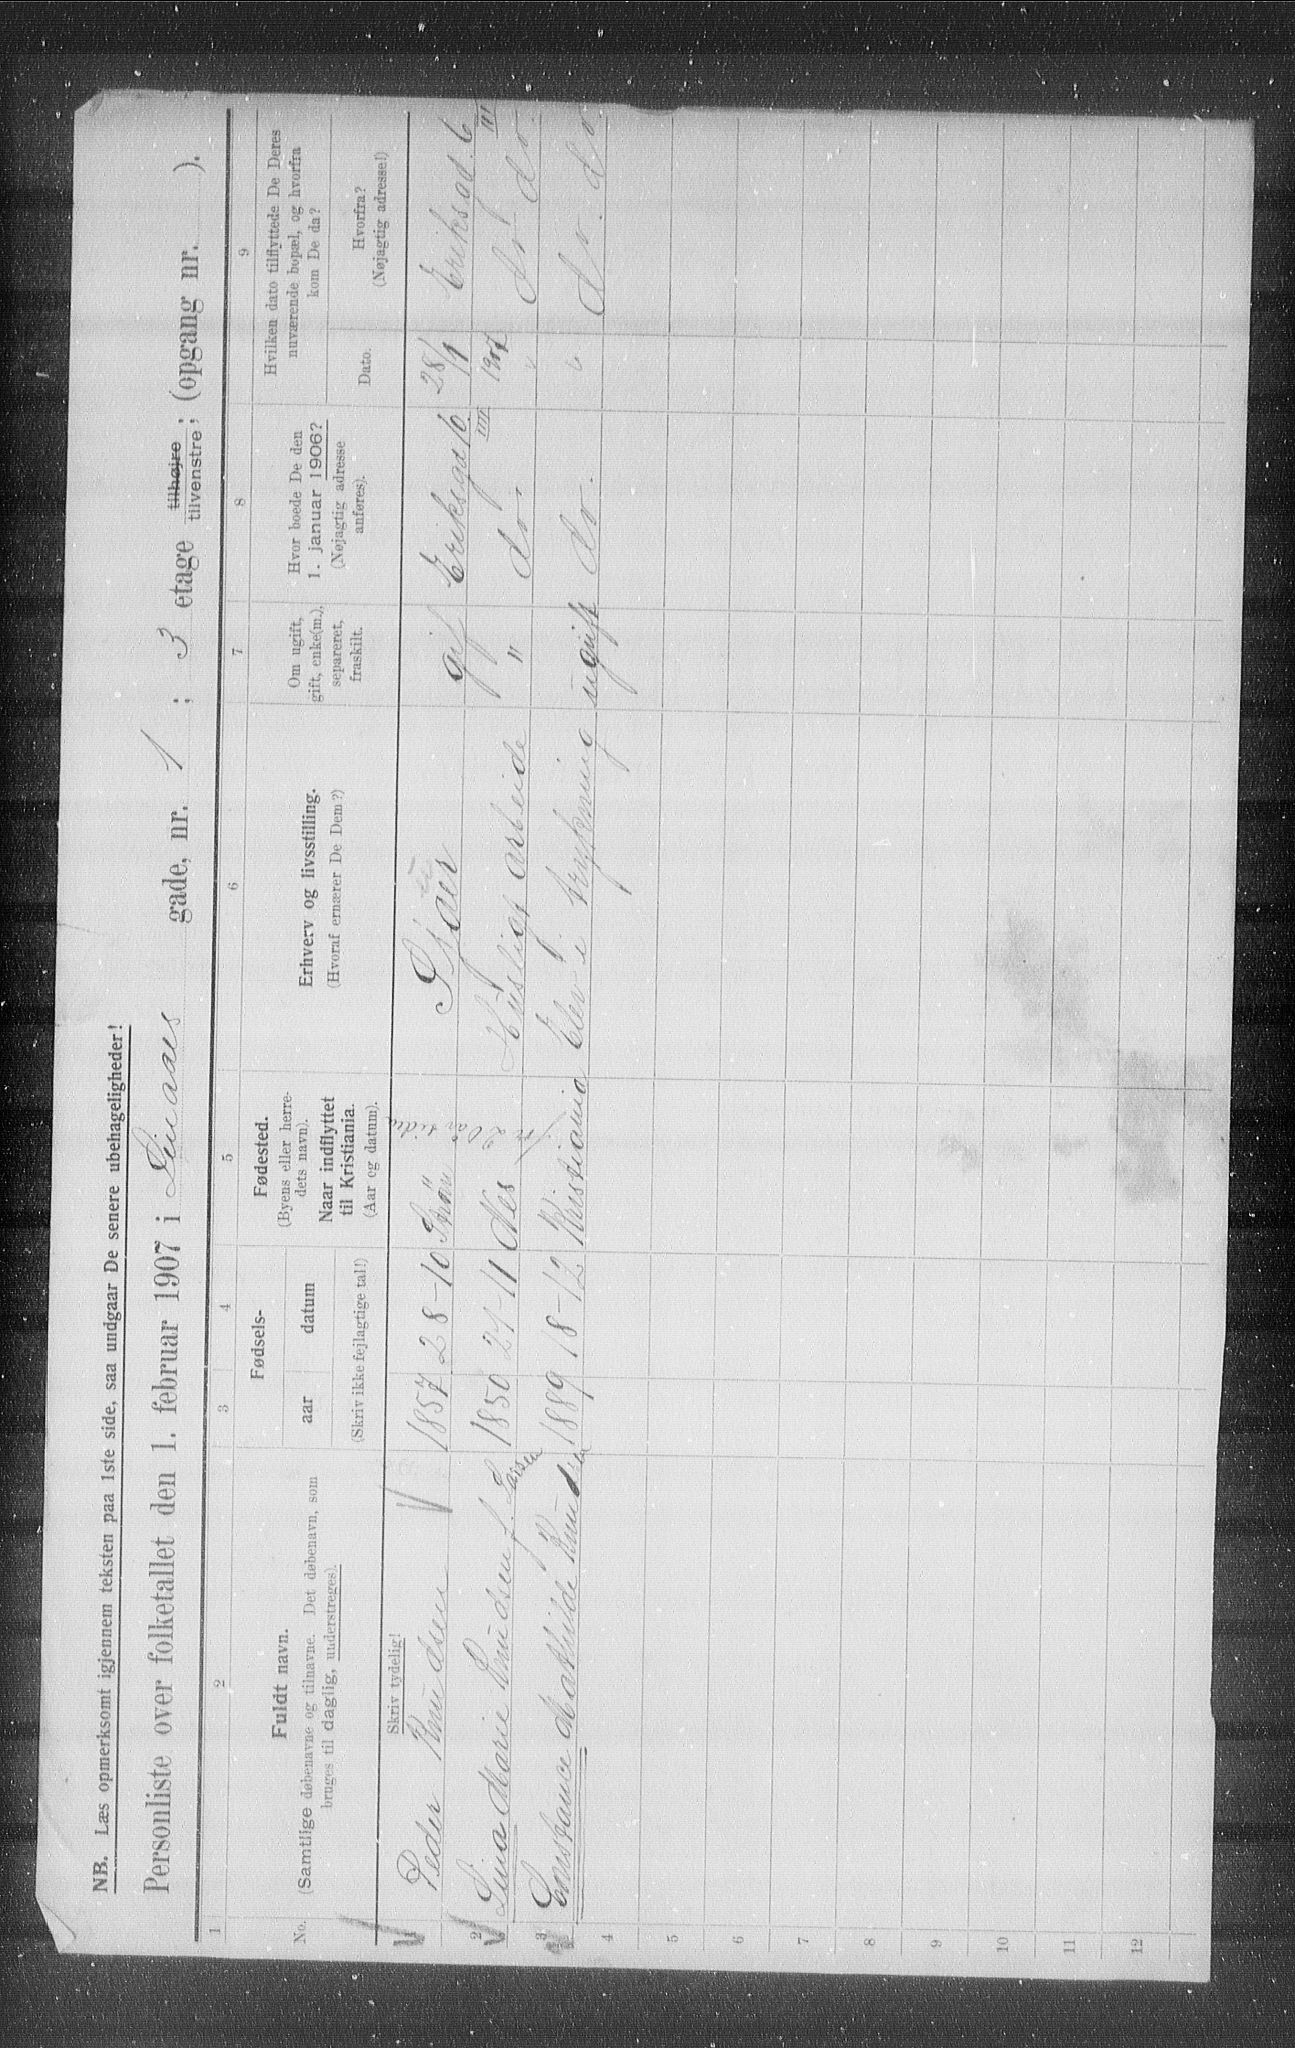 NB. Læs opmerksomt igjennem teksten paa 1ste side, saa undgaar De senere ubehageligheder!
Personliste over folketallet den 1. februar 1907 i gade, nr. 1 ; 3 etage tilhøjre ; (opgang nr. ).
tilvenstre ;
1 2 3 4 5 6 7 8 9
No.
Fuldt navn.
(Samtlige døbenavne og tilnavne. Det døbenavn, som
bruges til daglig, understreges).
Skriv tydelig!
Fødsels-
aar datum
(Skriv ikke fejlagtige tal!)
Fødested.
(Byens eller herre-
dets navn).
Naar indflyttet
til Kristiania.
(Aar og datum).
Erhverv og livsstilling.
(Hvoraf ernærer De Dem?)
Om ugift,
gift, enke(m.),
separeret,
fraskilt.
Hvor boede De den
1. januar 1906?
(Nøjagtig adresse
anføres).
Hvilken dato tilflyttede De Deres
nuværende bopæl, og hvorfra
kom De da?
Dato.
Hvorfra?
(Nøjagtig adresse!)
1 Peder Knudsen 1857 28-10 gift Eriksgd 6. IIII 28/1 1907 Eriksgd. 6 III
2 Lina Marie Knudsen f. Larsen 1850 21-11 Nes Husligt arbeide " do. " do do
3 Constance Mathilde Knudsen 1889 18-12 Kristiania Elev i trykning ugift do. " do. do
4
5
6
7
8
9
10
11
12